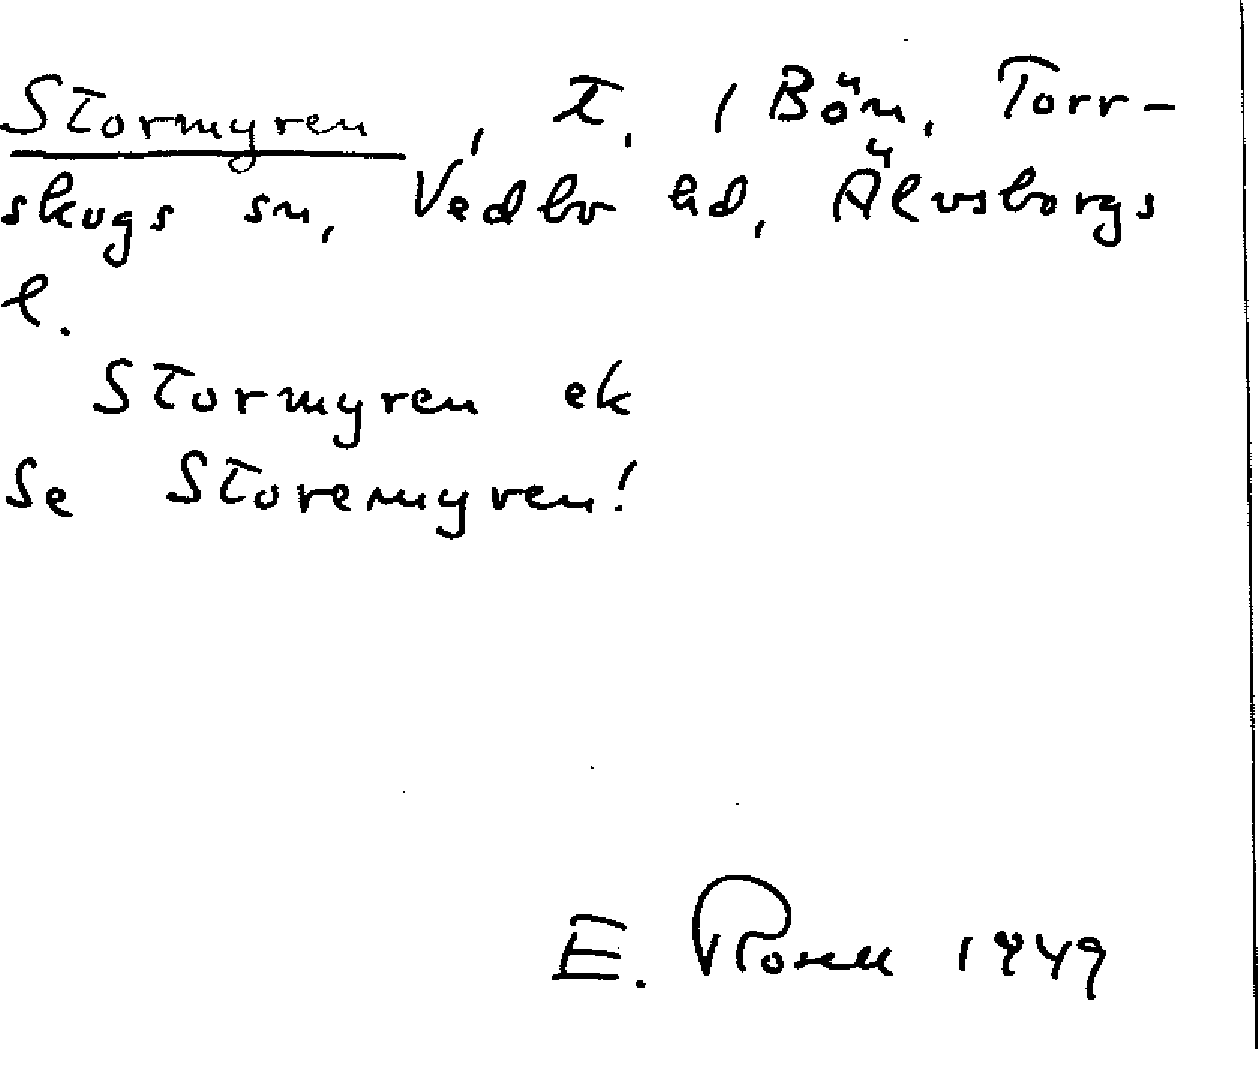 Stormyren, t. i Bön, Torr-
skogs sn, Vedbo hd, Älvsborgs
l.
Stormyren ek
Se Storemyren!
E. Rosell 1949